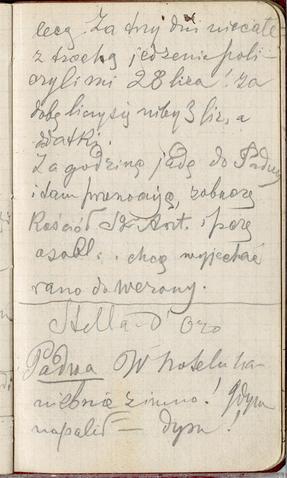 lecę. Za trzy dni niecałe
z trochą jedzenia poli-
czyli mi 28 lira! za
dobę liczy się niby 3 lir, a
Za godzinę jadę do Padwy
i tam przenocuję, zobaczę
Kościół Św Ant. i parę
osobl... chcę wyjechać
rano do Werony.
Stella d'Oro
Padwa W hotelu ha-
niebnie zimno! Gdym
napalił — dym!